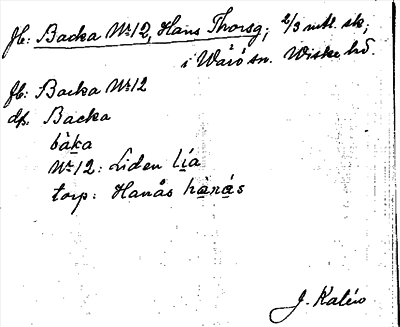 fb: Backa Nr 12, Hans Thorsg; 2/3 mtl. sk;
i Wärö sn. Wiske hd
fb: Backa Nr 12
df. Backa
bàka
Nr 12: Liden lía
torp: Hanås hànàs
J. Kalén